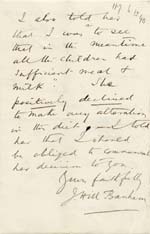 I also told her
that I was to see
that in the meantime
all the children had
sufficient meat &
milk. She
positively declined
to make any alteration
in the diet, and I told
her that I should
be obliged to communicate
her decision to you
Yours faithfully
J Will Banham